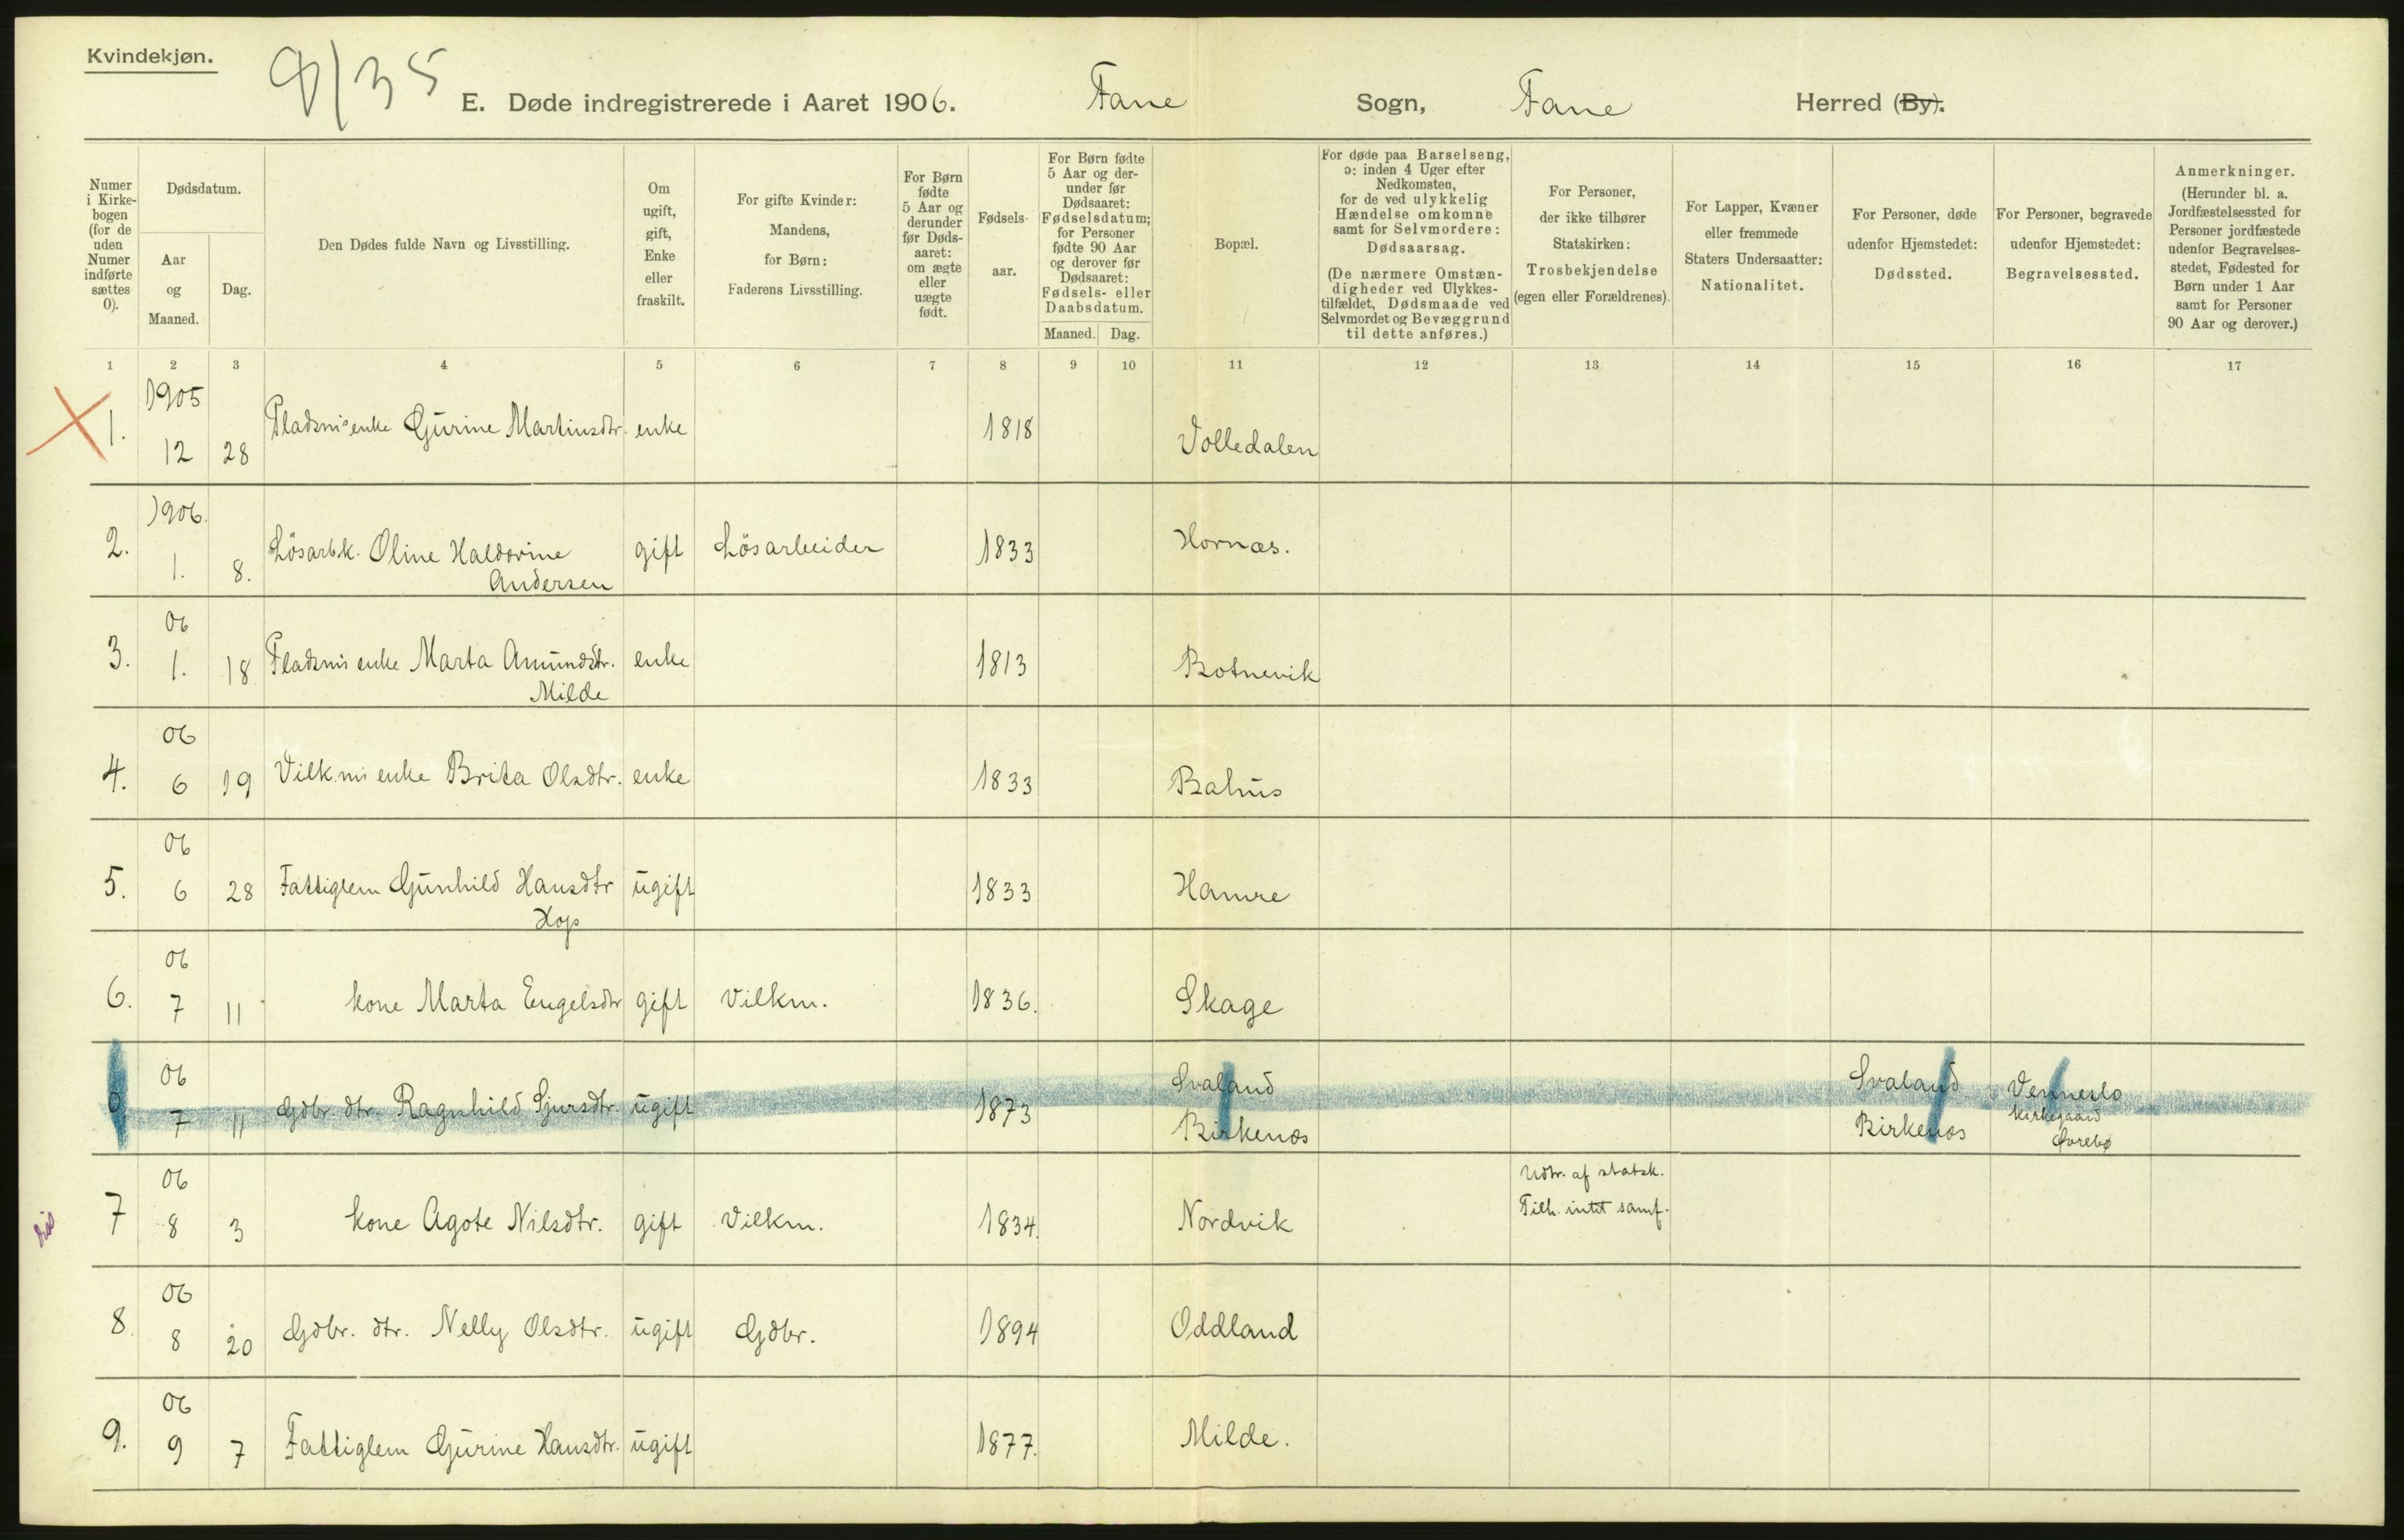 Kvindekjøn.
9/35
E. Døde indregistrerede i Aaret 1906. Fane Sogn, Fane Herred (By).
Numer i Kirkebogen (for de uden Numer indførte sættes 0).
Dødsdatum.
Aar og Maaned.
Dag.
Den Dødes fulde Navn og Livsstilling.
Om ugift, gift, Enke eller fraskilt.
For gifte Kvinder: Mandens, for Børn: Faderens Livsstilling.
For Børn fødte 5 Aar og derunder før Dødsaaret: om ægte eller uægte født.
Fødselsaar.
For Børn fødte 5 Aar og derunder før Dødsaaret: Fødselsdatum; for Personer fødte 90 Aar og derover før Dødsaaret: Fødsels- eller Daabsdatum.
Maaned. Dag.
Bopæl.
For døde paa Barselseng, ɔ: inden 4 Uger efter Nedkomsten, for de ved ulykkelig Hændelse omkomne samt for Selvmordere: Dødsaarsag. (De nærmere Omstændigheder ved Ulykkestilfældet, Dødsmaade ved Selvmordet og Bevæggrund til dette anføres.)
For Personer, der ikke tilhører Statskirken: Trosbekjendelse (egen eller Forældrenes).
For Lapper, Kvæner eller fremmede Staters Undersaatter: Nationalitet.
For Personer, døde udenfor Hjemstedet: Dødssted.
For Personer, begravede udenfor Hjemstedet: Begravelsessted.
Anmerkninger. (Herunder bl. a. Jordfæstelsessted for Personer jordfæstede udenfor Begravelsesstedet, Fødested for Børn under 1 Aar samt for Personer 90 Aar og derover.)
1 2 3 4 5 6 7 8 9 10 11 12 13 14 15 16 17
1905
1. 12 28 Pladsms enke Gurine Martinsdtr. enke 1818 Volledalen
1906.
2. 1. 8. Lösarb.k. Oline Haldorine gift Lösarbeider 1833 Hornæs.
Andersen
06
3. 1. 18 Pladsms enke Marta Amundsdtr. enke 1813 Botnevik
Milde
06
4. 6 19 Vilk.ms enke Brita Olsdtr. enke 1833 Bahus
06
5. 6 28 Fattiglem Gunhild Hansdtr ugift 1833 Hamre
Hop
06
6. 7 11 kone Marta Engelsdtr gift Vilkm. 1836. Skage
06 Svaland Svaland Vennesla
0 7 11 Gdbr. dtr. Ragnhild Sjursdtr. ugift 1873 Birkenæs Birkenæs Kirkegaard
Øvrebø
06 Udtr. af statsk.
7 8 3 kone Agote Nilsdtr. gift Vilkm. 1834. Nordvik Tilh. intet samf.
06
8. 8 20 Gdbr. dtr. Nelly Olsdtr. ugift Gdbr. 1894 Oddland
06
9. 9 7 Fattiglem Gurine Hansdtr. ugift 1877. Milde.